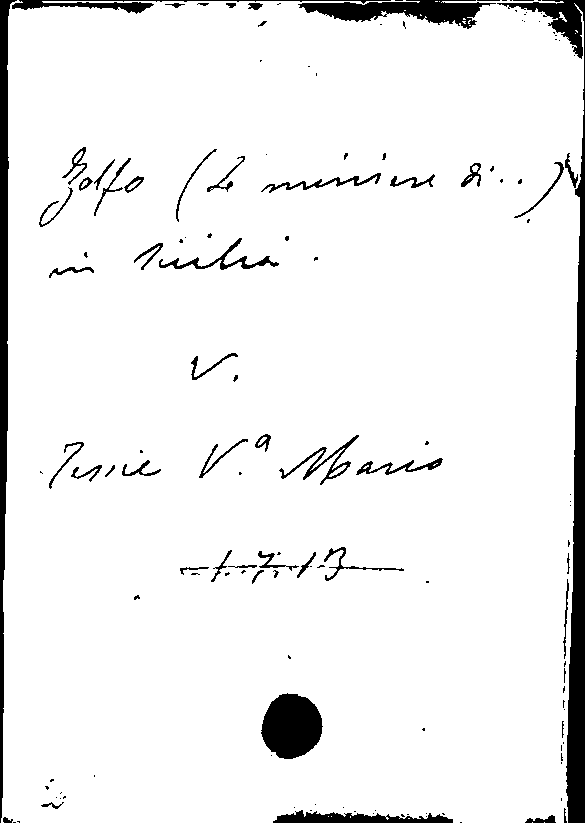 Zolfo (Le miniere di..)
in Sicilia.
V.
Jessie V.ª Mario